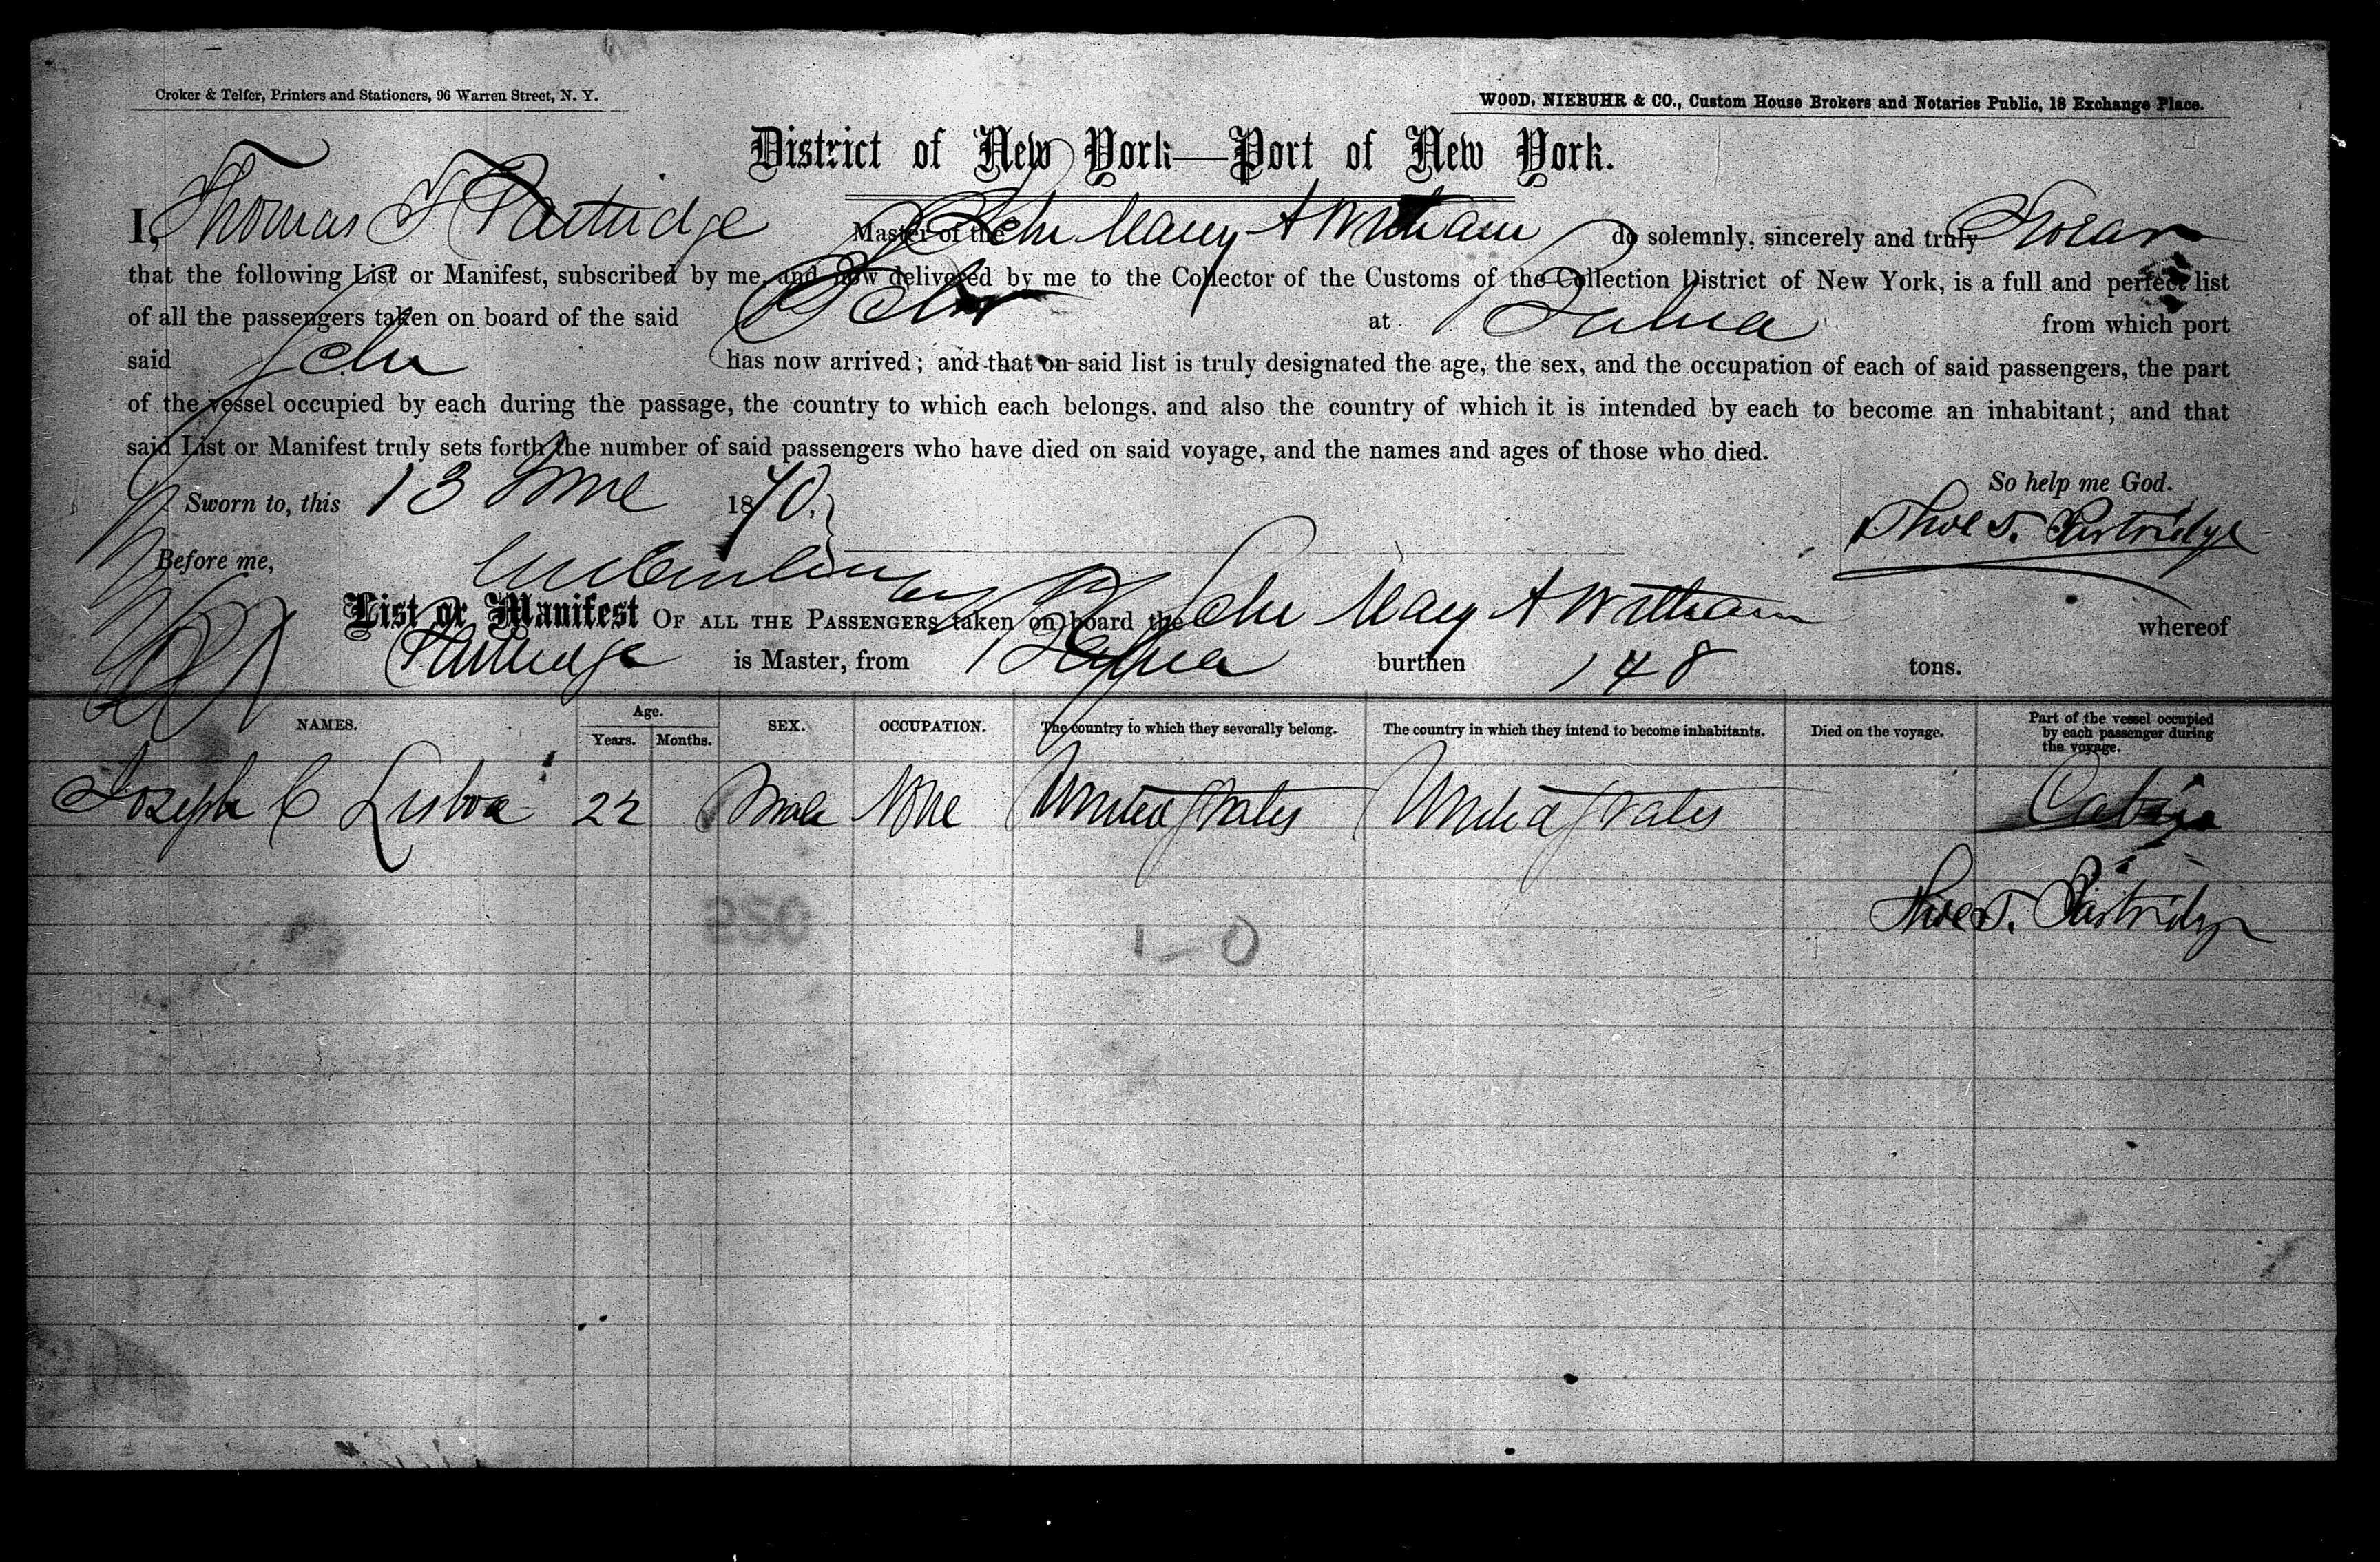 Croker & Telfer, Printers and Stationers, 96 Warren Street, N. Y.
WOOD, NIEBUHR & CO., Custom House Brokers and Notaries Public, 18 Exchange Place.
District of New York—Port of New York.
I, Thomas T Partridge Master of the Schr Mary A Witham do solemnly, sincerely and truly Swear
that the following List or Manifest, subscribed by me, and now delivered by me to the Collector of the Customs of the Collection District of New York, is a full and perfect list
of all the passengers taken on board of the said Schr at Bahia from which port
said Schr has now arrived; and that on said list is truly designated the age, the sex, and the occupation of each of said passengers, the part
of the vessel occupied by each during the passage, the country to which each belongs. and also the country of which it is intended by each to become an inhabitant; and that
said List or Manifest truly sets forth the number of said passengers who have died on said voyage, and the names and ages of those who died.
So help me God.
Sworn to, this 13 June 1870.
Thos T. Partridge
Before me,
List or Manifest OF ALL THE PASSENGERS taken on board the Schr Mary A Witham whereof
Partridge is Master, from Bahia burthen 148 tons.
NAMES. Age. Years. Months. SEX. OCCUPATION. The country to which they severally belong. The country in which they intend to become inhabitants. Died on the voyage. Part of the vessel occupied by each passenger during the voyage.
Joseph C Lisboa 22 Male None United States United States Cabin
Thos T. Partridge
250
1-0